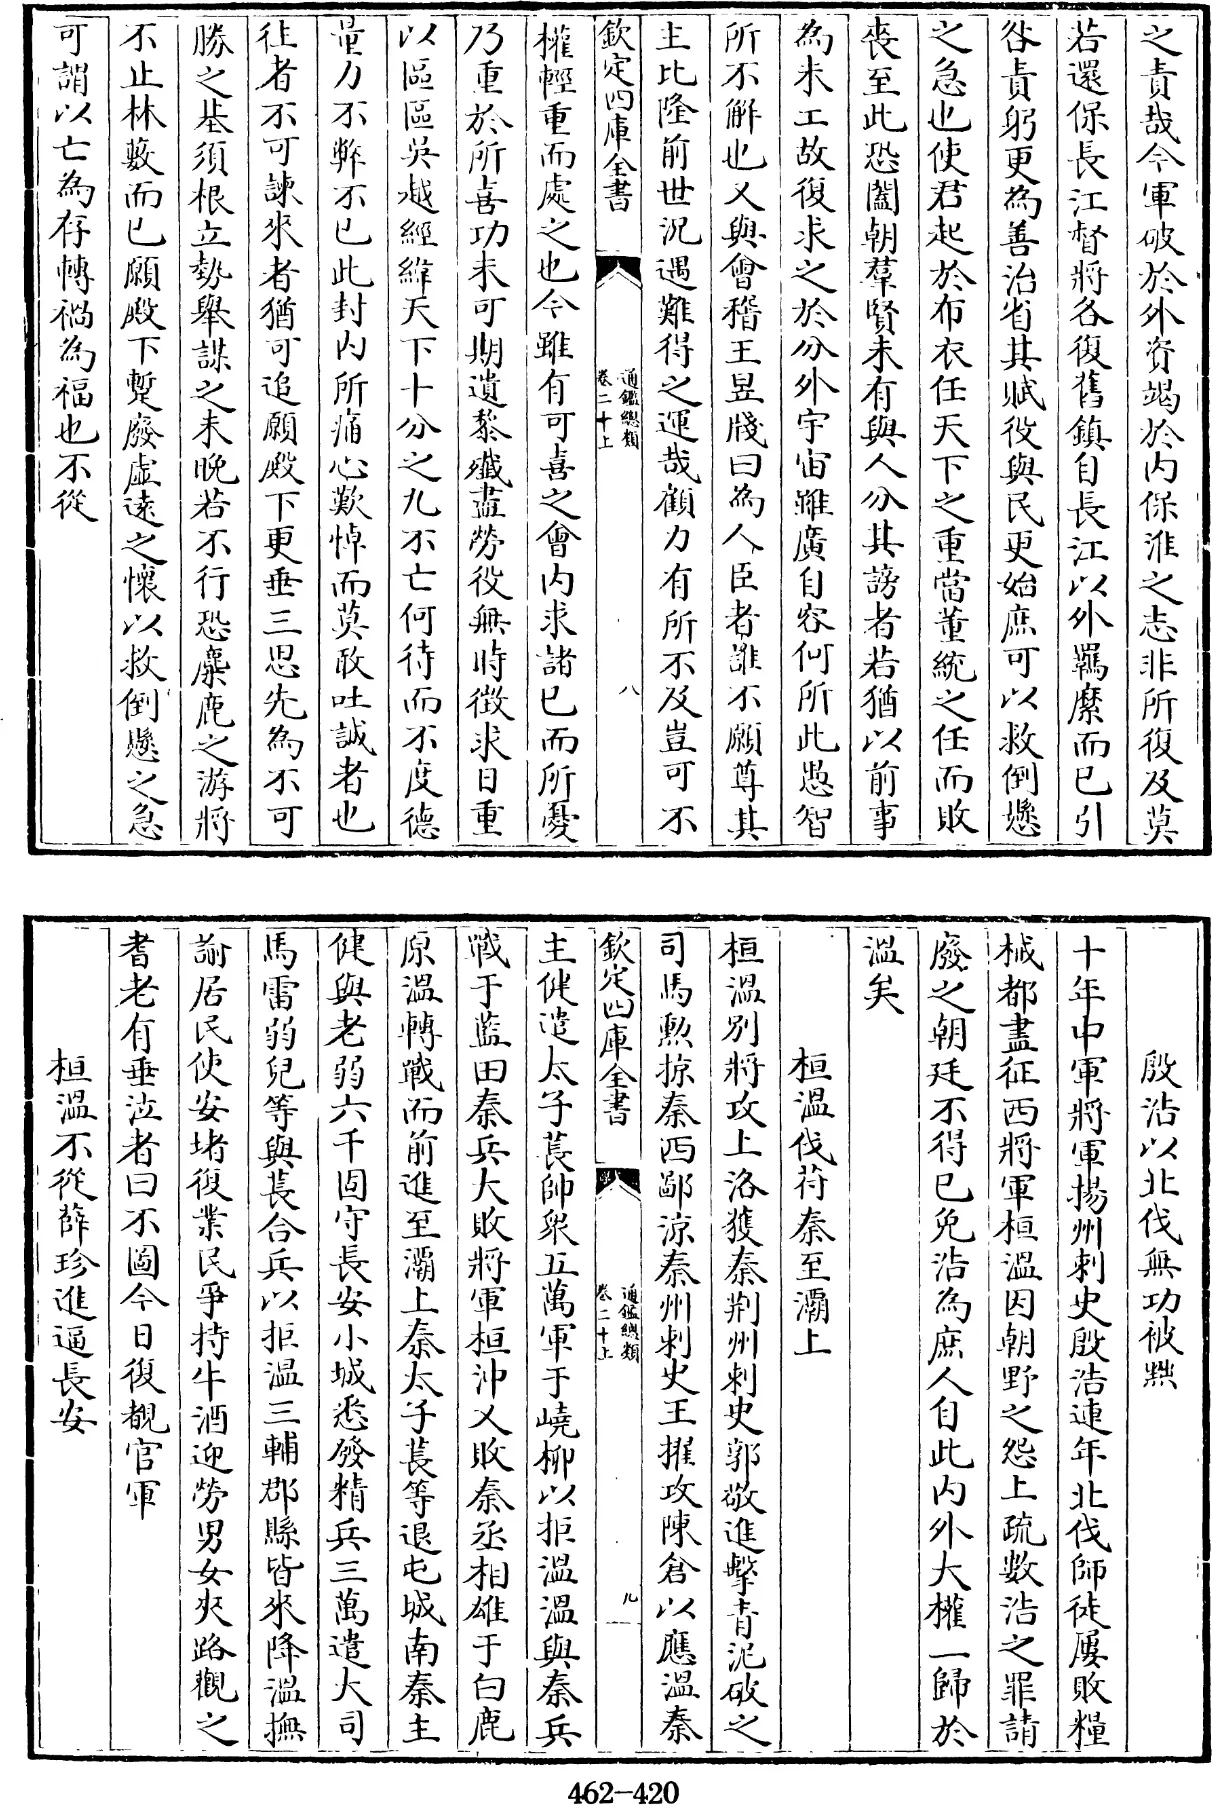 之責哉今軍破於外資竭於内保淮之志非所復及莫
若還保長江督將各復舊鎮自長江以外羈縻而已引
咎責躬更為善治省其賦役與民更始庶可以救倒懸
之急也使君起於布衣任天下之重當董統之任而敗
喪至此恐闔朝羣賢未有與人分其謗者若猶以前事
為未工故復求之於分外宇宙雖廣自容何所此愚智
所不解也又與會稽王昱牋曰為人臣者誰不願尊其
主比隆前世況遇難得之運哉顧力有所不及豈可不
欽定四庫全書
通鑑總類
卷二十上
八
權輕重而處之也今雖有可喜之會内求諸己而所憂
乃重於所喜功未可期遺黎殲盡勞役無時徴求日重
以區區吳越經緯天下十分之九不亡何待而不度德
量力不弊不已此封内所痛心歎悼而莫敢吐誠者也
往者不可諫來者猶可追願殿下更垂三思先為不可
勝之基須根立勢舉謀之未晚若不行恐麋鹿之游將
不止林藪而已願殿下蹔廢虛遠之懷以救倒懸之急
可謂以亡為存轉禍為福也不從
殷浩以北伐無功被黜
十年中軍將軍揚州刺史殷浩連年北伐師徒屢敗糧
械都盡征西將軍桓溫因朝野之怨上疏數浩之罪請
廢之朝廷不得已免浩為庶人自此内外大權一歸於
溫矣
桓溫伐苻秦至灞上
桓溫別將攻上洛獲秦荆州刺史郭敬進擊青泥破之
司馬勲掠秦西鄙涼秦州刺史王擢攻陳倉以應溫秦
欽定四庫全書
通鑑總類
卷二十上
九
主健遣太子萇帥衆五萬軍于嶢柳以拒溫溫與秦兵
戰于藍田秦兵大敗將軍桓沖又敗秦丞相雄于白鹿
原溫轉戰而前進至灞上秦太子萇等退屯城南秦主
健與老弱六千固守長安小城悉發精兵三萬遣大司
馬雷弱兒等與萇合兵以拒溫三輔郡縣皆來降溫撫
諭居民使安堵復業民爭持牛酒迎勞男女夾路觀之
耆老有垂泣者曰不圖今日復覩官軍
桓溫不從薛珍進逼長安
462-420